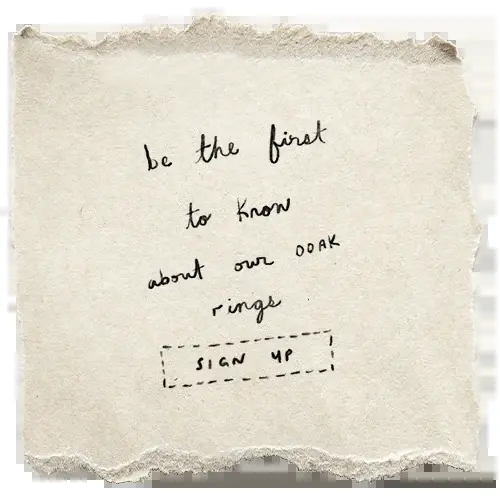 be the first
to know
about our OOAK
rings
SIGN UP